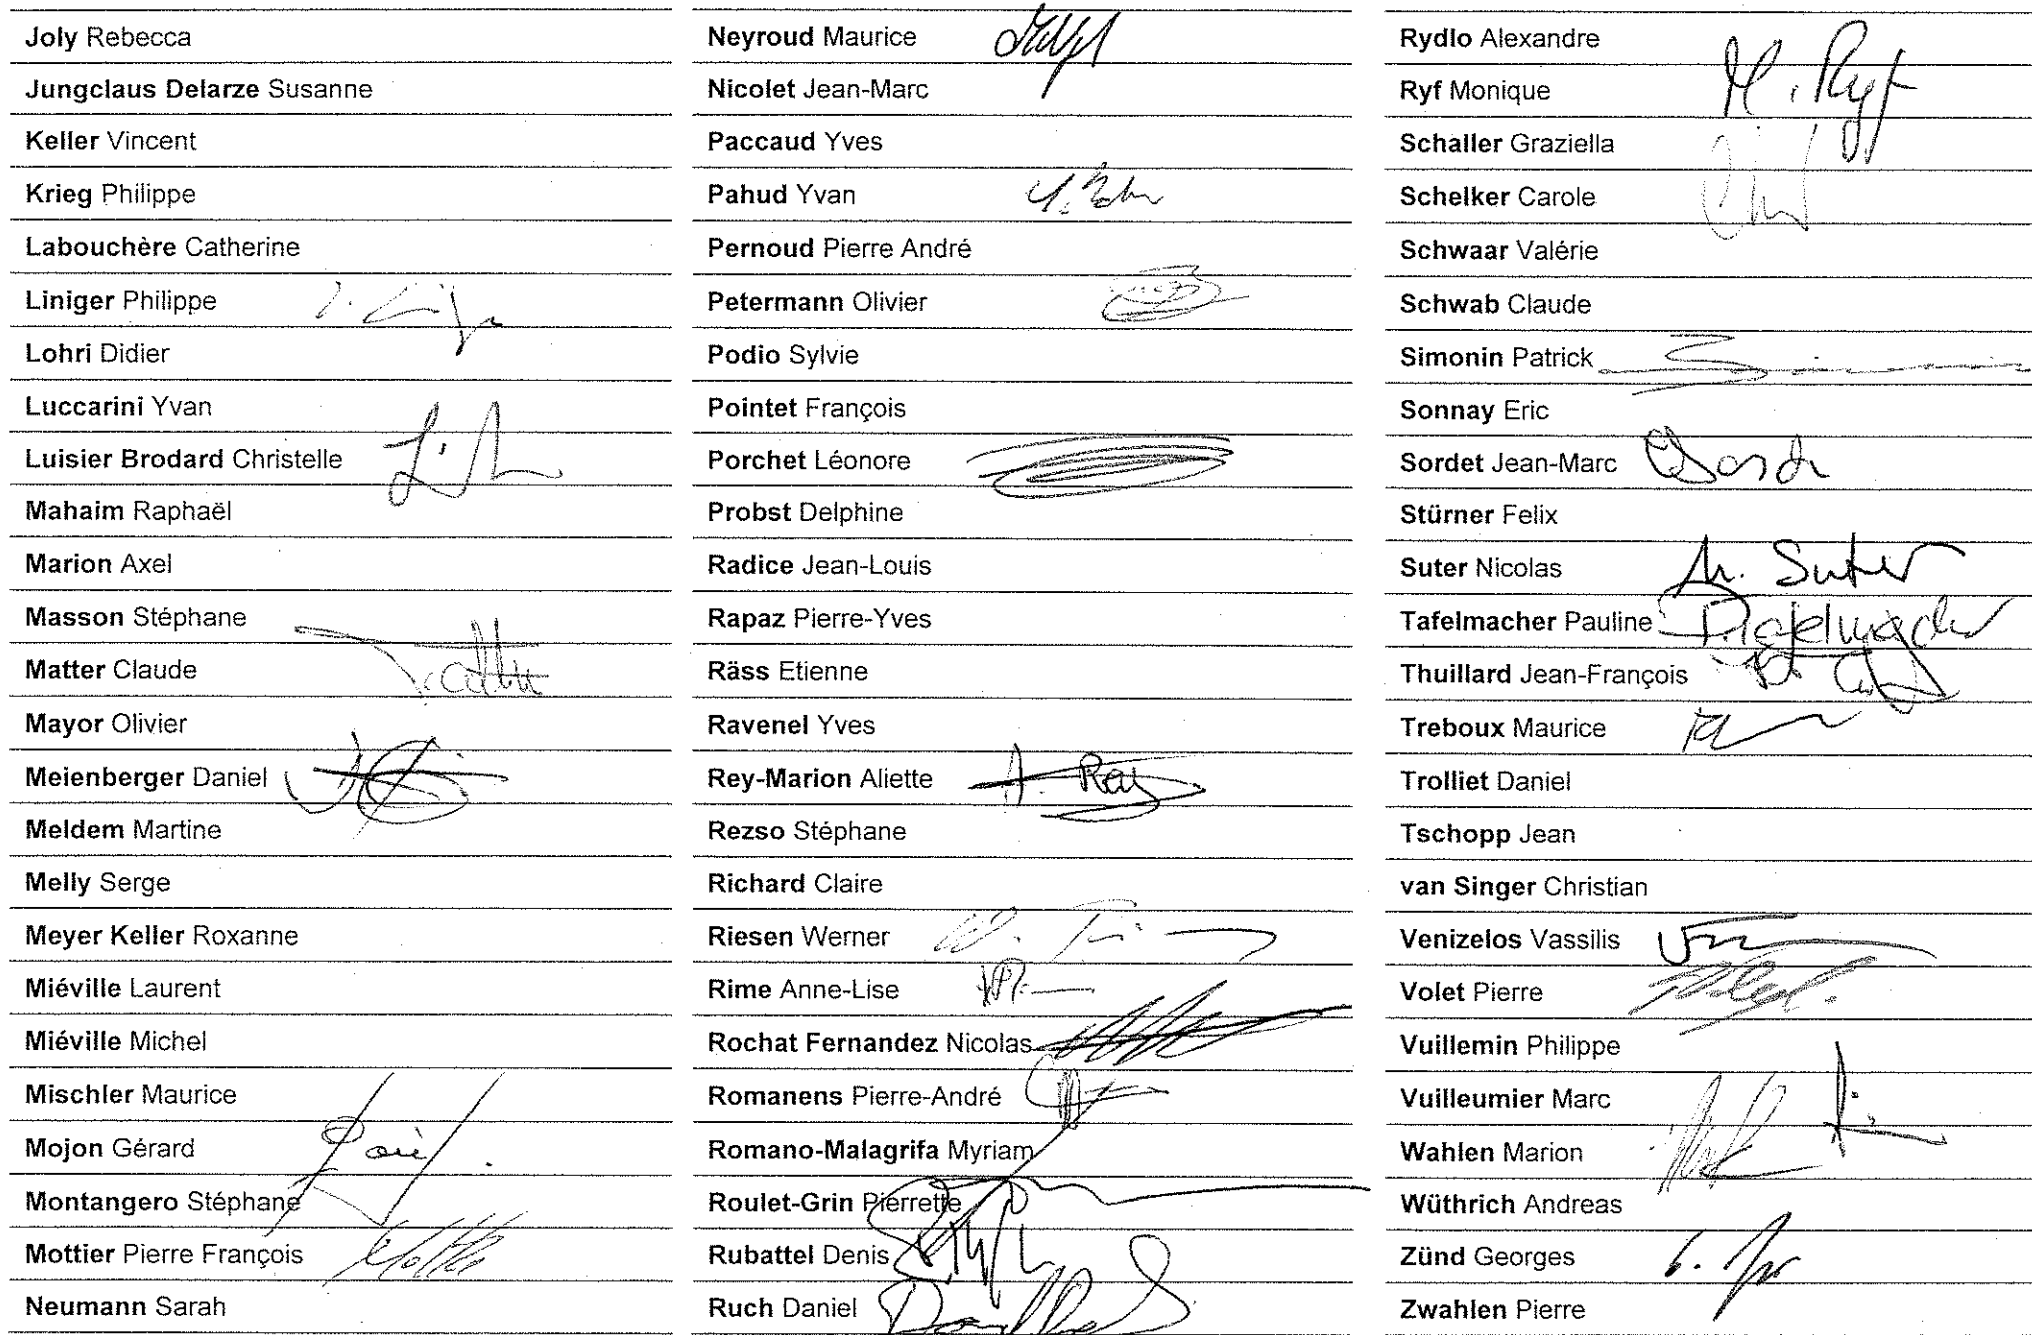 Joly Rebecca
Jungclaus Delarze Susanne
Keller Vincent
Krieg Philippe
Labouchère Catherine
Liniger Philippe
Lohri Didier
Luccarini Yvan
Luisier Brodard Christelle
Mahaim Raphaël
Marion Axel
Masson Stéphane
Matter Claude
Mayor Olivier
Meienberger Daniel
Meldem Martine
Melly Serge
Meyer Keller Roxanne
Miéville Laurent
Miéville Michel
Mischler Maurice
Mojon Gérard
Montangero Stéphane
Mottier Pierre François
Neumann Sarah
Neyroud Maurice
Nicolet Jean-Marc
Paccaud Yves
Pahud Yvan
Pernoud Pierre André
Petermann Olivier
Podio Sylvie
Pointet François
Porchet Léonore
Probst Delphine
Radice Jean-Louis
Rapaz Pierre-Yves
Räss Etienne
Ravenel Yves
Rey-Marion Aliette A. Rey
Rezso Stéphane
Richard Claire
Riesen Werner
Rime Anne-Lise
Rochat Fernandez Nicolas
Romanens Pierre-André
Romano-Malagrifa Myriam
Roulet-Grin Pierrette
Rubattel Denis
Ruch Daniel
Rydlo Alexandre
Ryf Monique M. Ryf
Schaller Graziella
Schelker Carole
Schwaar Valérie
Schwab Claude
Simonin Patrick
Sonnay Eric
Sordet Jean-Marc
Stürner Felix
Suter Nicolas N. Suter
Tafelmacher Pauline Tafelmacher
Thuillard Jean-François
Treboux Maurice
Trolliet Daniel
Tschopp Jean
van Singer Christian
Venizelos Vassilis
Volet Pierre
Vuillemin Philippe
Vuilleumier Marc
Wahlen Marion
Wüthrich Andreas
Zünd Georges
Zwahlen Pierre